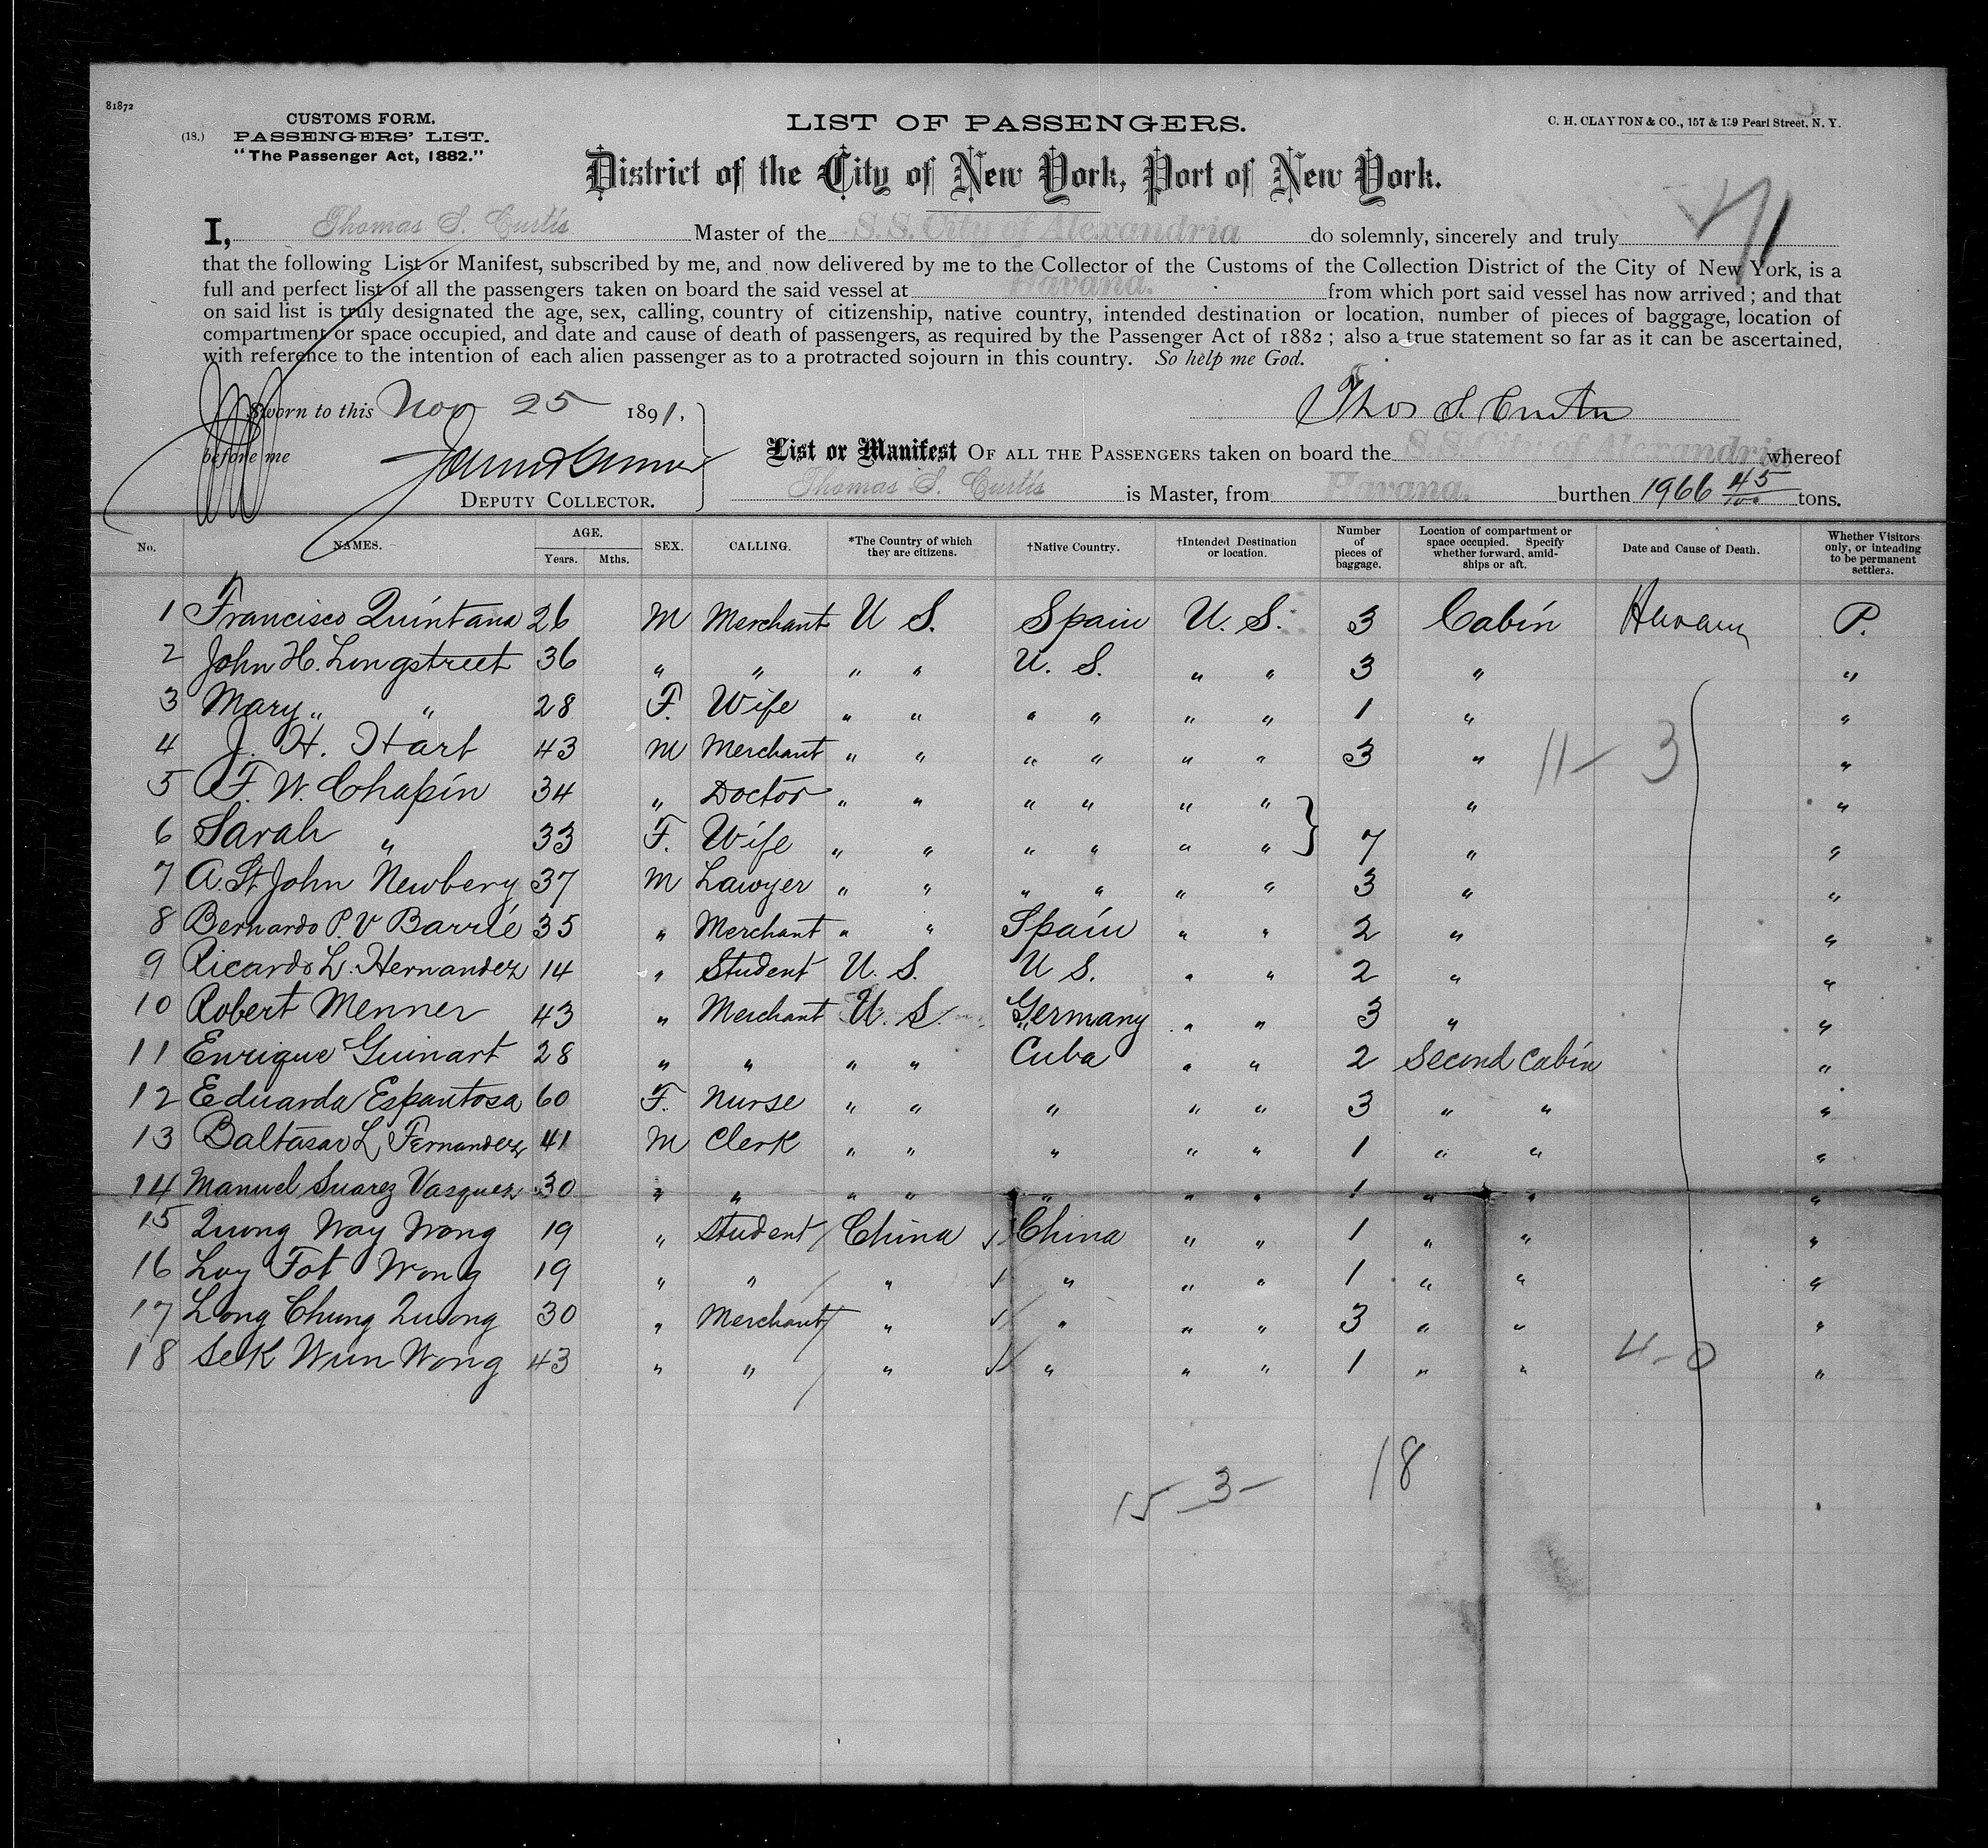 81872
CUSTOMS FORM.
(18.) PASSENGERS' LIST.
"The Passenger Act, 1882."
LIST OF PASSENGERS.
C. H. CLAYTON & CO., 157 & 159 Pearl Street, N. Y.
District of the City of New York, Port of New York.
I, Thomas S. Curtis Master of the S.S. City of Alexandria do solemnly, sincerely and truly
that the following List or Manifest, subscribed by me, and now delivered by me to the Collector of the Customs of the Collection District of the City of New York, is a
full and perfect list of all the passengers taken on board the said vessel at Havana. from which port said vessel has now arrived; and that
on said list is truly designated the age, sex, calling, country of citizenship, native country, intended destination or location, number of pieces of baggage, location of
compartment or space occupied, and date and cause of death of passengers, as required by the Passenger Act of 1882; also a true statement so far as it can be ascertained,
with reference to the intention of each alien passenger as to a protracted sojourn in this country. So help me God.
Sworn to this Nov 25 1891. Thos S. Curtis
before me
DEPUTY COLLECTOR.
List or Manifest OF ALL THE PASSENGERS taken on board the S.S. City of Alexandria whereof
Thomas S. Curtis is Master, from Havana. burthen 1966 45/100 tons.
No. NAMES. AGE. Years. Mths. SEX. CALLING. *The Country of which they are citizens. †Native Country. †Intended Destination or location. Number of pieces of baggage. Location of compartment or space occupied. Specify whether forward, amidships or aft. Date and Cause of Death. Whether Visitors only, or intending to be permanent settlers.
1 Francisco Quintana 26 M Merchant U S. Spain U. S. 3 Cabin Havana P.
2 John H. Longstreet 36 " " " " U. S. " " 3 " "
3 Mary " " 28 F. Wife " " " " " " 1 " "
4 J. H. Hart 43 M Merchant " " " " " " 3 " 11 - 3 "
5 F. W. Chapin 34 " Doctor " " " " " " } " "
6 Sarah " 33 F. Wife " " " " " " 7 " "
7 A. St John Newbery 37 M Lawyer " " " " " " 3 " "
8 Bernardo P. V Barrié 35 " Merchant " " Spain " " 2 " "
9 Ricardo L. Hernandez 14 " Student U. S. U S. " " 2 " "
10 Robert Menner 43 " Merchant U. S. Germany " " 3 " "
11 Enrique Guinart 28 " " " " Cuba " " 2 Second Cabin "
12 Eduarda Espantosa 60 F. Nurse " " " " " 3 " " "
13 Baltasar L Fernandez 41 M Clerk " " " " " 1 " " "
14 Manuel Suarez Vasquez 30 " " " " " " " 1 " " "
15 Quong Way Wong 19 " Student China China " " 1 " " "
16 Loy Fot Wong 19 " " " " " " 1 " " "
17 Long Chung Quong 30 " Merchant " " " " 3 " " "
18 Sek Wun Wong 43 " " " " " " 1 " " 4 - 0 "
15 - 3 - 18